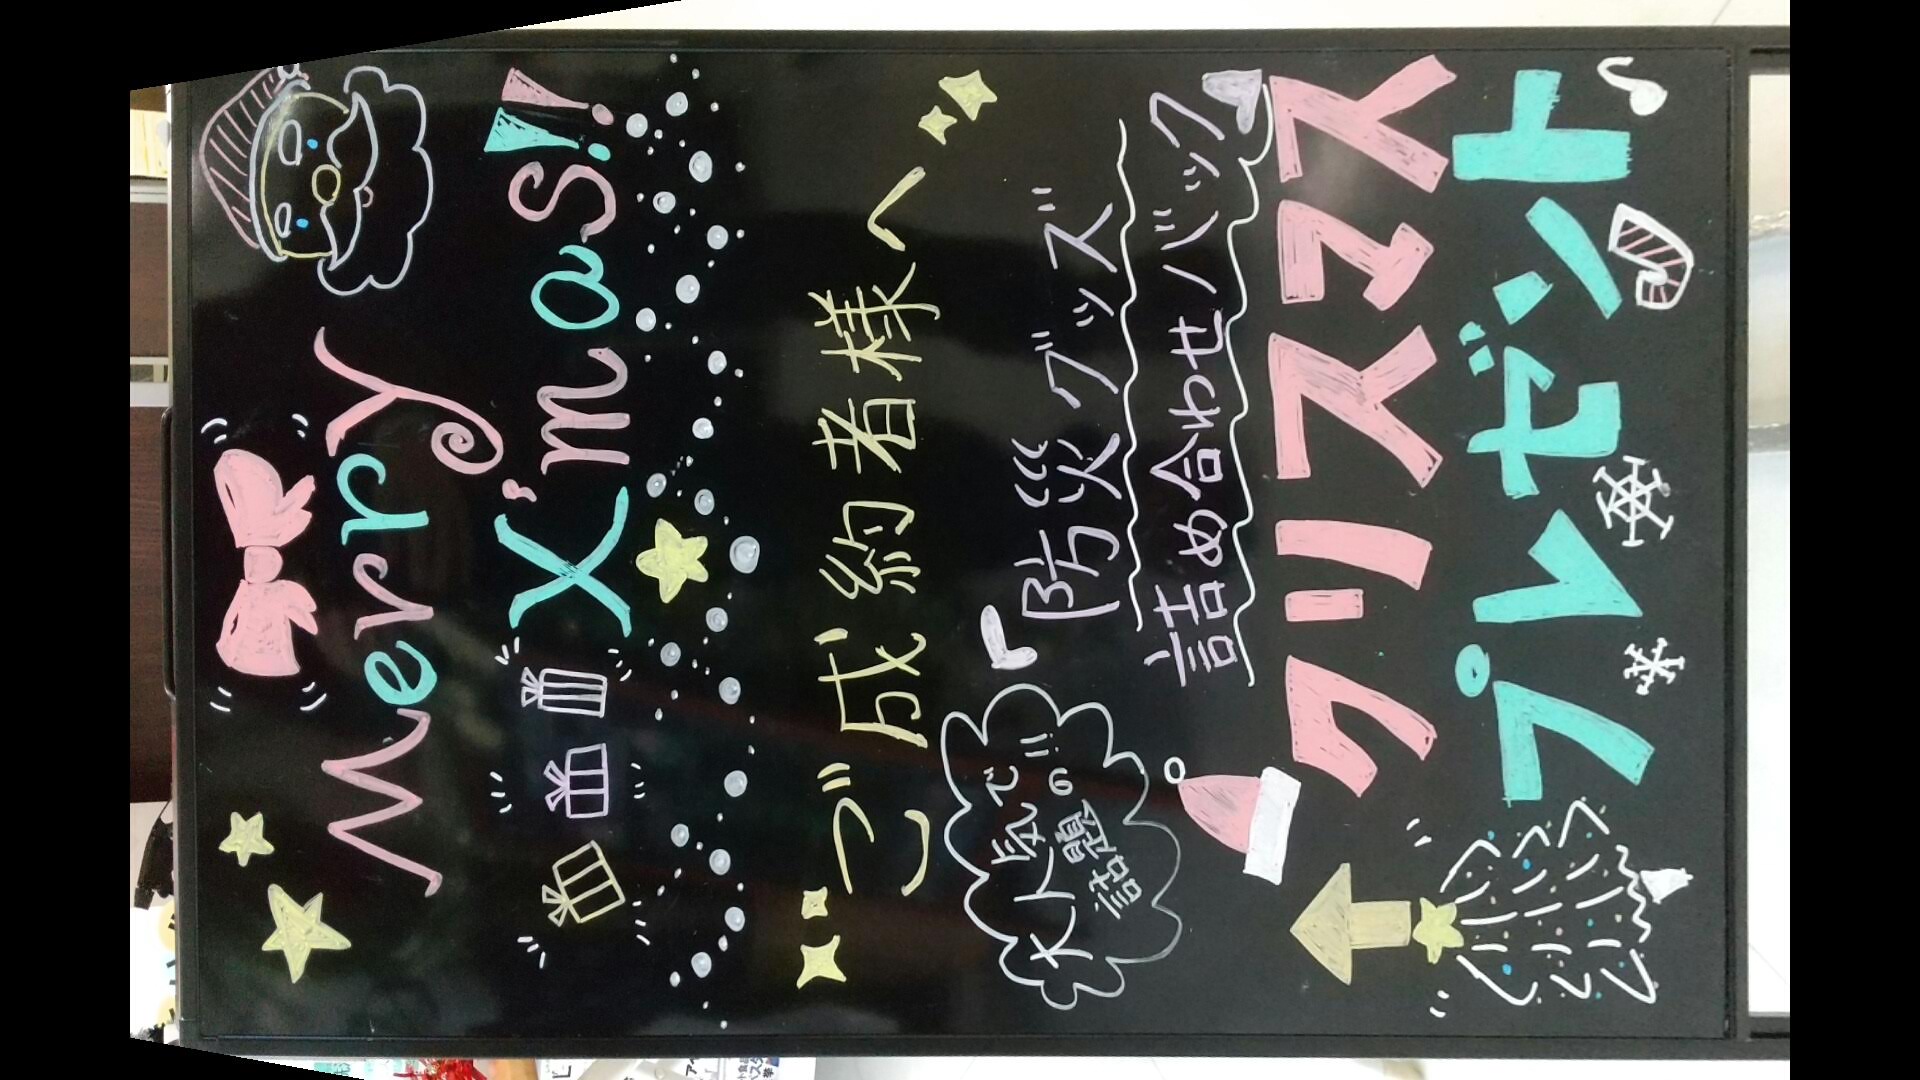 Merry
X'mas!!
ご成約者様へ
大人気で
話題の!!
防災グッズ
詰め合わせバック
クリスマス
プレゼント